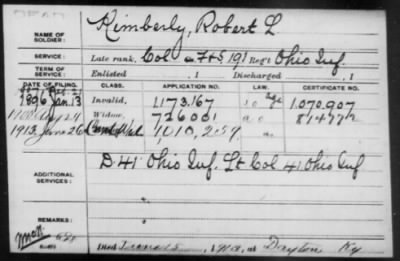 Kimberly, Robert L.
NAME OF SOLDIER:
SERVICE: Late rank, Col F+S 191 Reg't Ohio Inf.
TERM OF SERVICE: Enlisted , 1 Discharged , 1
DATE OF FILING. CLASS. APPLICATION NO. LAW. CERTIFICATE NO.
1896 Jan. 13 Invalid, 1173.167 1.070.907
Widow, 726001
1913 June 26 1,010,259
ADDITIONAL SERVICES: D 41" Ohio Inf. Lt Col 41 Ohio Inf
REMARKS:
Died 1913, at Dayton Ky